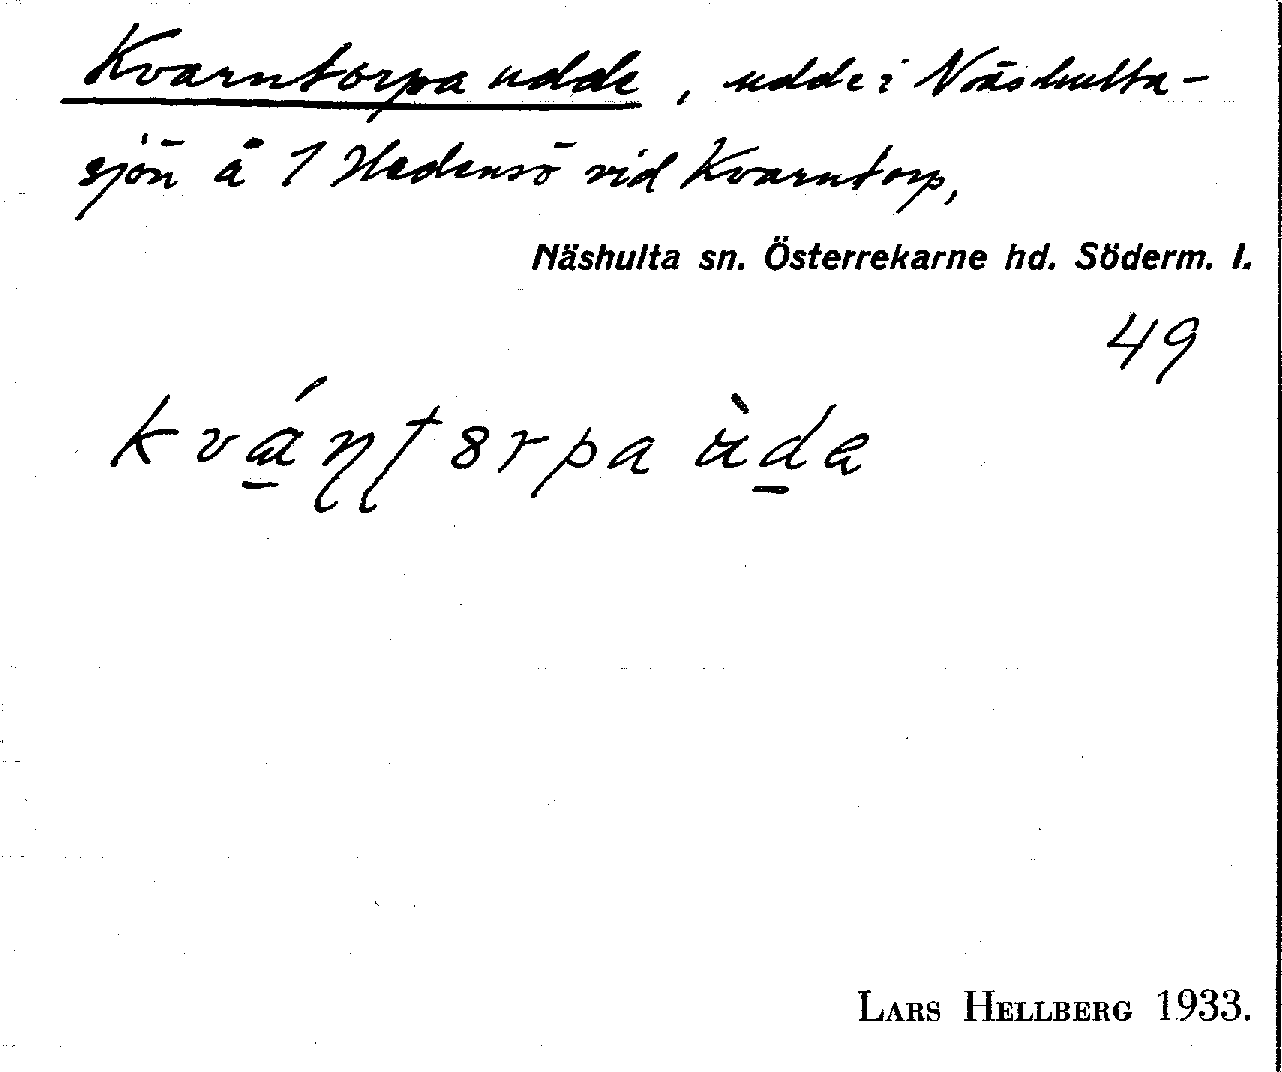 Kvarntorpa udde, udde i Näshulta-
sjön å 1 Hedensö vid Kvarntorp,
Näshulta sn. Österrekarne hd. Söderm. l.
49
kvá̱ɳʈ8rpa ùḏe
LARS HELLBERG 1933.